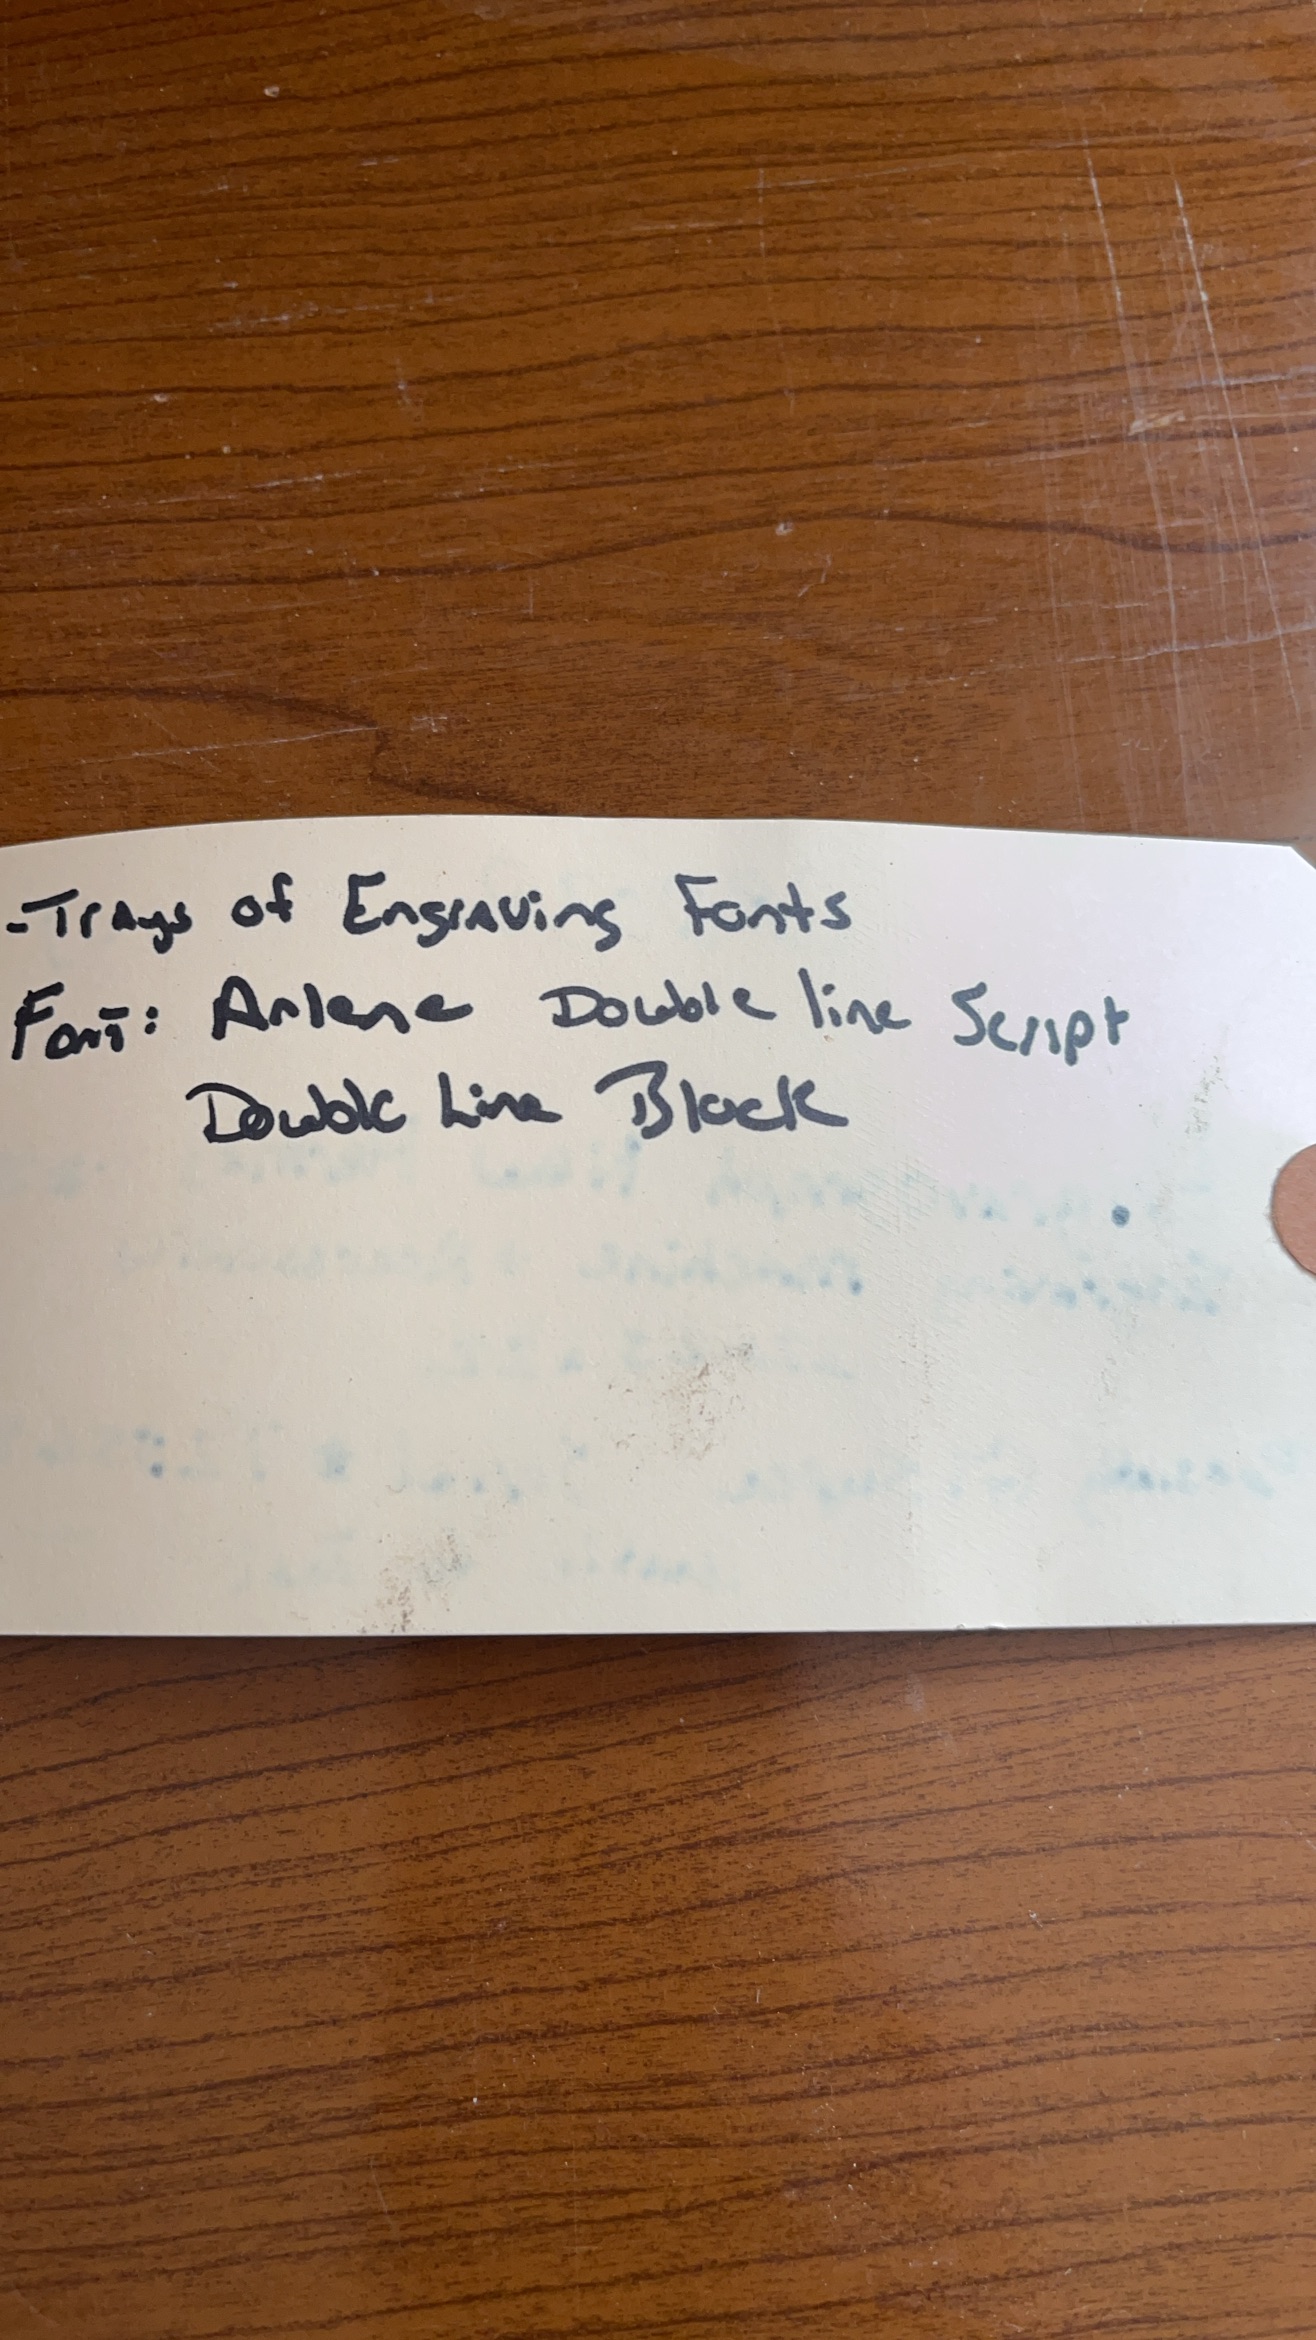 -Trays of Engraving Fonts
Font: Arlene Double line Script
Double Line Block